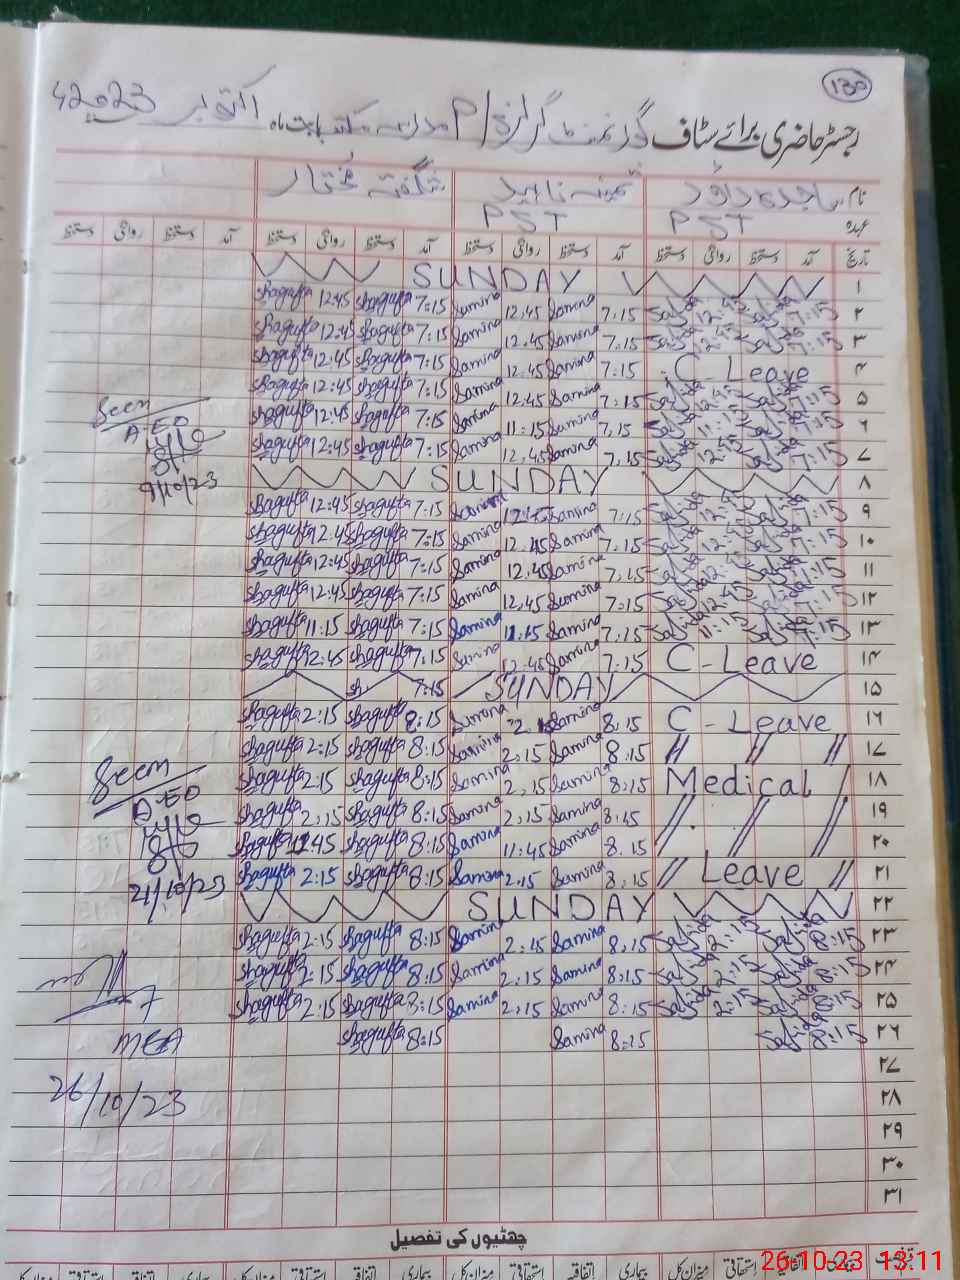 130
رجسٹر حاضری برائے سٹاف گورنمنٹ گرلز P/ مدرسہ مکتب بابت ماہ اکتوبر 2023ء
نام ساجدہ داؤد ثمینہ ناہید شگفتہ مختار
عہدہ PST PST
تاریخ آمد دستخط روانگی دستخط آمد دستخط روانگی دستخط آمد دستخط روانگی دستخط آمد دستخط روانگی دستخط
۱ SUNDAY
۲ 7:15 Sajida 12:45 Sajida 7:15 Samina 12:45 Samina 7:15 Shagufta 12:45 Shagufta
۳ 7:15 Sajida 12:45 Sajida 7:15 Samina 12:45 Samina 7:15 Shagufta 12:45 Shagufta
۴ C-Leave 7:15 Samina 12:45 Samina 7:15 Shagufta 12:45 Shagufta
۵ 7:15 Sajida 12:45 Sajida 7:15 Samina 12:45 Samina 7:15 Shagufta 12:45 Shagufta
۶ 7:15 Sajida 11:15 Sajida 7:15 Samina 11:15 Samina 7:15 Shagufta 12:45 Shagufta
۷ 7:15 Sajida 12:45 Sajida 7:15 Samina 12:45 Samina 7:15 Shagufta 12:45 Shagufta
Seen
AEO
۸ SUNDAY
9/10/23
۹ 7:15 Sajida 12:45 Sajida 7:15 Samina 12:45 Samina 7:15 Shagufta 12:45 Shagufta
۱۰ 7:15 Sajida 12:45 Sajida 7:15 Samina 12:45 Samina 7:15 Shagufta 12:45 Shagufta
۱۱ 7:15 Sajida 12:45 Sajida 7:15 Samina 12:45 Samina 7:15 Shagufta 12:45 Shagufta
۱۲ 7:15 Sajida 12:45 Sajida 7:15 Samina 12:45 Samina 7:15 Shagufta 12:45 Shagufta
۱۳ 7:15 Sajida 11:15 Sajida 7:15 Samina 11:15 Samina 7:15 Shagufta 11:15 Shagufta
۱۴ C-Leave 7:15 Samina 12:45 Samina 7:15 Shagufta 12:45 Shagufta
۱۵ SUNDAY 7:15 Sh
۱۶ C-Leave 8:15 Samina 2:15 Samina 8:15 Shagufta 2:15 Shagufta
۱۷ // // // 8:15 Samina 2:15 Samina 8:15 Shagufta 2:15 Shagufta
۱۸ Medical / 8:15 Samina 2:15 Samina 8:15 Shagufta 2:15 Shagufta
۱۹ 8:15 Samina 2:15 Samina 8:15 Shagufta 2:15 Shagufta
۲۰ // // // 8:15 Samina 11:45 Samina 8:15 Shagufta 11:45 Shagufta
۲۱ // Leave // 8:15 Samina 2:15 Samina 8:15 Shagufta 2:15 Shagufta
Seen
AEO
21/10/23
۲۲ SUNDAY
۲۳ 8:15 Sajida 2:15 Sajida 8:15 Samina 2:15 Samina 8:15 Shagufta 2:15 Shagufta
۲۴ 8:15 Sajida 2:15 Sajida 8:15 Samina 2:15 Samina 8:15 Shagufta 2:15 Shagufta
۲۵ 8:15 Sajida 2:15 Sajida 8:15 Samina 2:15 Samina 8:15 Shagufta 2:15 Shagufta
۲۶ 8:15 Sajida 8:15 Samina 8:15 Shagufta
MEA
26/10/23
۲۷
۲۸
۲۹
۳۰
۳۱
چھٹیوں کی تفصیل
بیماری اتفاقیہ استحقاقی میزان کل
26.10.23 13:11